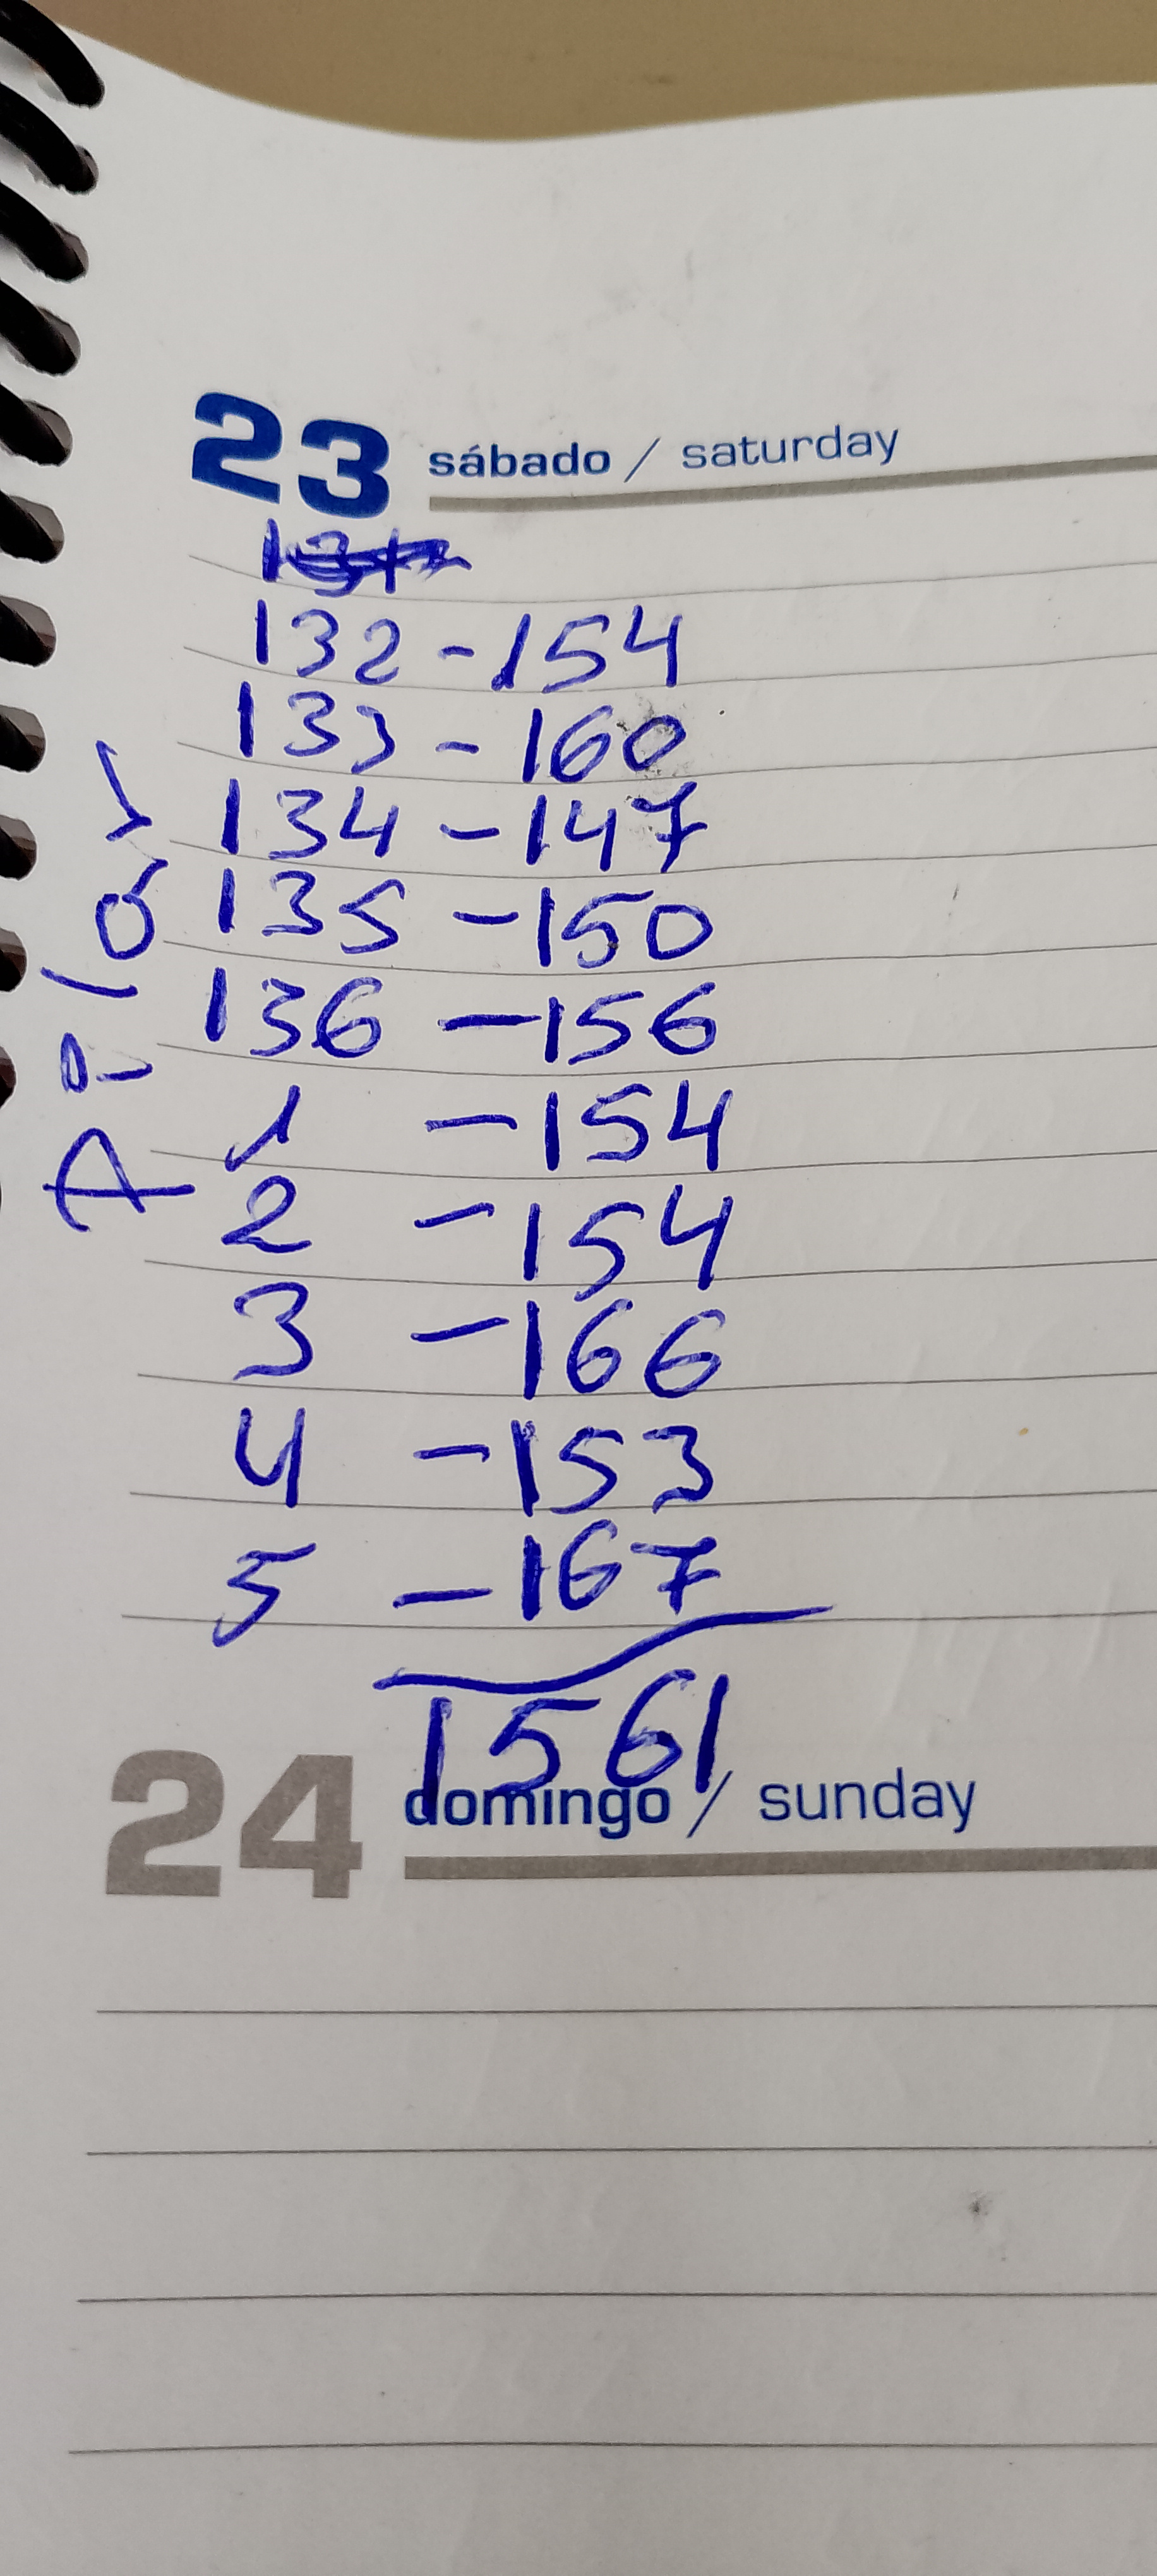 23 sábado / saturday
132 - 154
133 - 160
134 - 147
135 - 150
136 - 156
1 - 154
2 - 154
3 - 166
4 - 153
5 - 167
1561
24 domingo / sunday